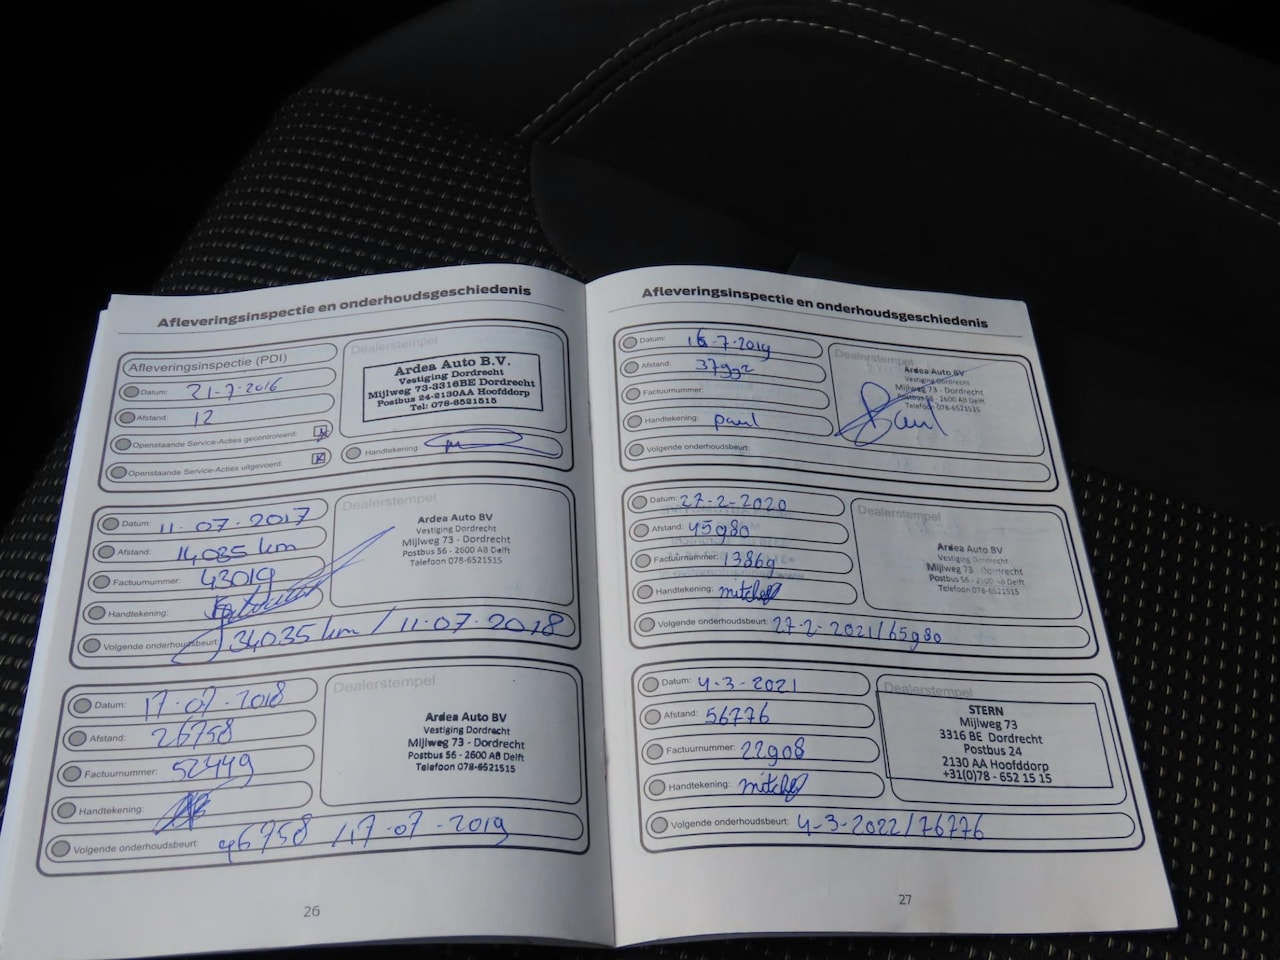 Afleveringsinspectie en onderhoudsgeschiedenis
Afleveringsinspectie (PDI)
Datum: 21-7-2016
Afstand: 12
Openstaande Service-Acties gecontroleerd:
Openstaande Service-Acties uitgevoerd:
Dealerstempel
Ardea Auto B.V.
Vestiging Dordrecht
Mijlweg 73-3316BE Dordrecht
Postbus 24-2130AA Hoofddorp
Tel: 078-6521515
Handtekening:
Datum: 11-07-2017
Afstand: 14035 km
Factuurnummer: 43019
Handtekening:
Volgende onderhoudsbeurt: 34035 km / 11-07-2018
Dealerstempel
Ardea Auto BV
Vestiging Dordrecht
Mijlweg 73 - Dordrecht
Postbus 56 - 2600 AB Delft
Telefoon 078-6521515
Datum: 17-07-2018
Afstand: 26758
Factuurnummer: 52449
Handtekening:
Volgende onderhoudsbeurt: 46758 / 17-07-2019
Dealerstempel
Ardea Auto BV
Vestiging Dordrecht
Mijlweg 73 - Dordrecht
Postbus 56 - 2600 AB Delft
Telefoon 078-6521515
26
Afleveringsinspectie en onderhoudsgeschiedenis
Datum: 16-7-2019
Afstand: 37992
Factuurnummer:
Handtekening: paul
Volgende onderhoudsbeurt:
Dealerstempel
Ardea Auto BV
Vestiging Dordrecht
Mijlweg 73 - Dordrecht
Postbus 56 - 2600 AB Delft
Telefoon 078-6521515
Paul
Datum: 27-2-2020
Afstand: 45980
Factuurnummer: 13869
Handtekening: mitchel
Volgende onderhoudsbeurt: 27-2-2021/65980
Dealerstempel
Ardea Auto BV
Vestiging Dordrecht
Mijlweg 73 - Dordrecht
Postbus 56 - 2600 AB Delft
Telefoon 078-6521515
Datum: 4-3-2021
Afstand: 56776
Factuurnummer: 22908
Handtekening: mitchel
Volgende onderhoudsbeurt: 4-3-2022/76776
Dealerstempel
STERN
Mijlweg 73
3316 BE Dordrecht
Postbus 24
2130 AA Hoofddorp
+31(0)78 - 652 15 15
27